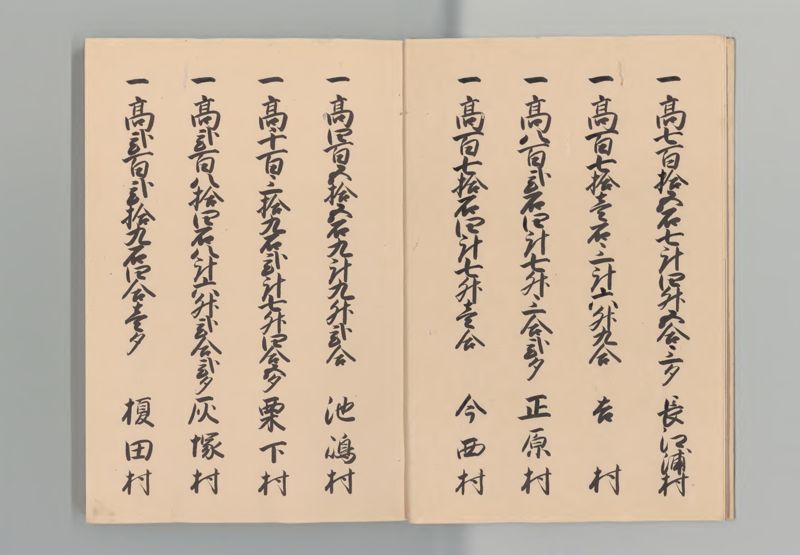 一高七百拾五石七斗四升五合三夕 長江浦村
一高百七拾壱石三斗六升九合 吉村
一高八百弐石四斗七升三合弐夕 正原村
一高百七拾石四斗七升壱合 今西村
一高四百五拾五石九斗九升弐合 池嶋村
一高千百三拾九石弐斗七升四合五夕 栗下村
一高弐百八拾四石八斗六升弐合弐夕 灰塚村
一高弐百弐拾九石四合壱夕 榎田村